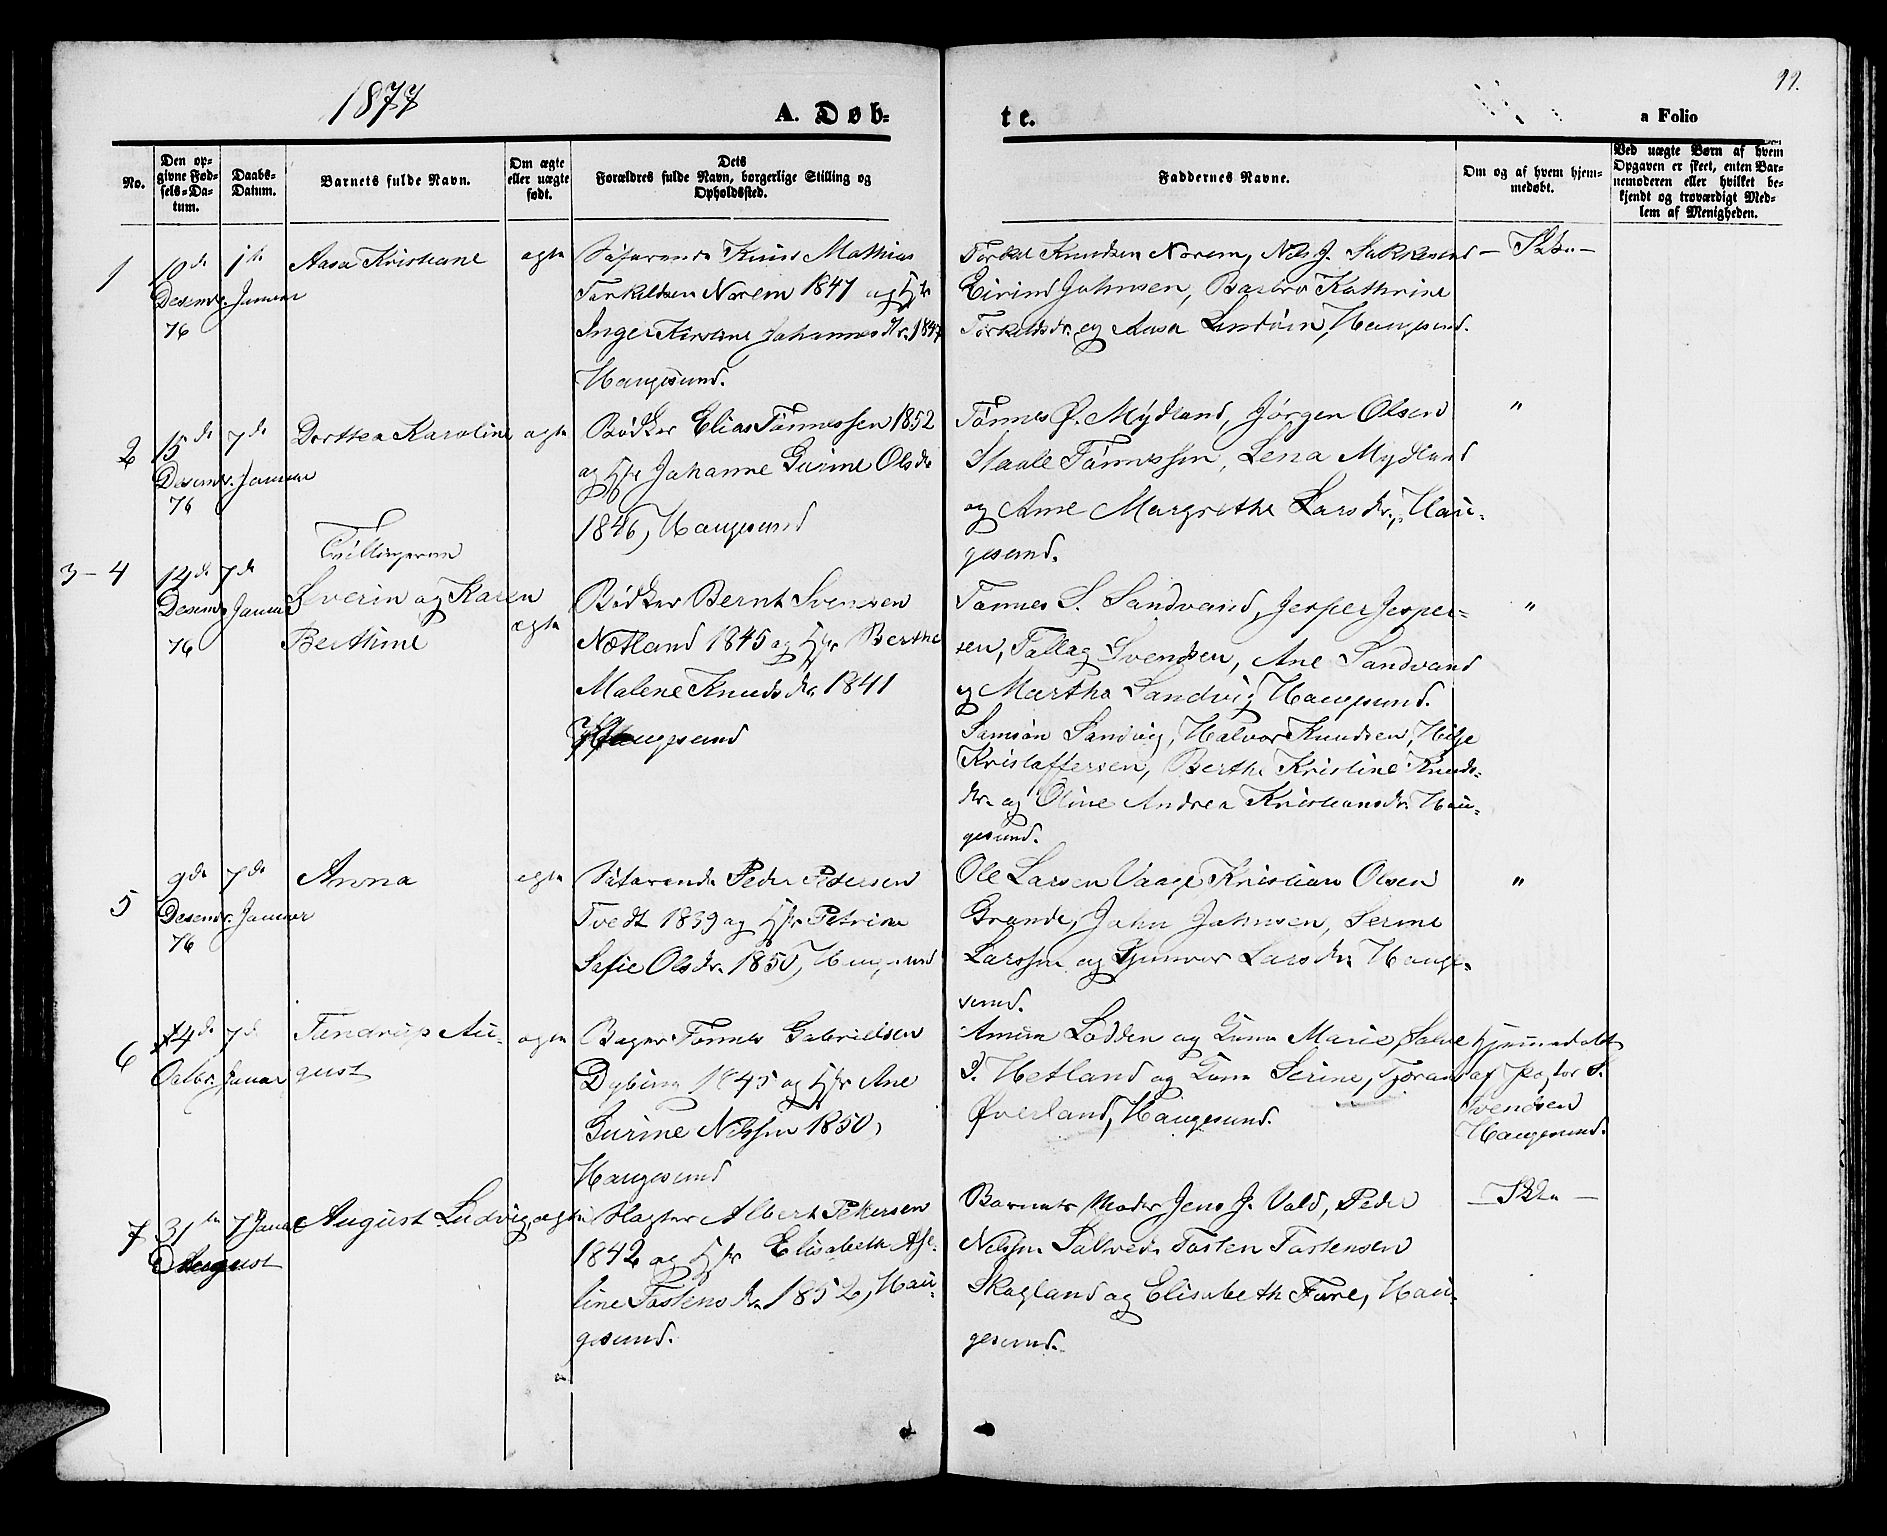 1877
A. Døb-
te.
a Folio
11.
No.
Den op-
givne Fød-
sels-Da-
tum.
Daabs-
Datum.
Barnets fulde Navn.
Om ægte
eller uægte
født.
Dets
Forældres fulde Navn, borgerlige Stilling og
Opholdssted.
Faddernes Navne.
Om og af hvem hjem-
medøbt.
Ved uægte Børn af hvem
Opgaven er skeet, enten Bar-
nemoderen eller hvilket be-
kjendt og troværdigt Med-
lem af Menigheden.
1
10de
Desembr.
76
1te
Januar
Aasa Kristiane
ægte
Søfarende Knud Mathias
Torkildsen Norem 1847 og Hstr
Inger Kirstine Johannesdtr. 1847
Haugesund.
Torkel Knudsen Norem, Nils J.
Eivind Johnsen, Barbro Kathrine
Torkildsdr. og Aasa Lindøen, Haugesund.
2
15de
Desembr.
76
7de
Januar
Dorthea Karoline
ægte
Bødker Elias Tønnessen 1852
og Hstr Johanne Gurine Olsdr
1846, Haugesund
Tønnes Ø. Mydland, Jørgen Olsen
Staale Tønnessen, Lena Mydland
og Ane Margrethe Larsdr., Hau-
gesund.
"
3-4
14de
Desembr
76
7de
Januar
Tvillingerne
Severin og Karen
Berthine
ægte
Bødker Bernt Svensen
Nætland 1845 og Hstr Berthe
Malene Knudsdr. 1841
Haugesund
Tønnes S. Sandvand, Jesper Jesper-
sen, Tallag Svendsen, Ane Sandvand
og Martha Sandvig Haugesund.
Samson Sandvig, Halvor Knudsen, Helge
Kristoffersen, Berthe Kristine Knuds-
dr. og Oline Andrea Kristiansdr. Hau-
gesund.
"
5
9de
Desembr.
76
7de
Januar
Anna
ægte
Søfarende Peder Pedersen
Tvedt 1839 og Hstr Petrine
Sofie Olsdr. 1850, Haugesund
Ole Larsen Vaage, Kristian Olsen
Grande, John Johnsen, Serine
Larssen og Gunvor Larsdr. Hauge-
sund.
"
6
14de
Oktbr.
7de
Januar
Tendrup Au-
gust
ægte
Bager Tønnes Gabrielsen
Dybing 1845 og Hstr Ane
Gurine Nilssen 1850,
Haugesund
Amum Lødden og Kone Marie, Salve
Hetland og Kone Serine,
Øverland, Haugesund.
hjemmedøbt
af Pastor S.
Svendsen
Haugesund.
7
31te
August
7 Januar
August Ludvig
ægte
Slagter Albert Pettersen
1842 og Hstr Elisabeth Ase-
line Tostensdr. 1852, Hau-
gesund.
Barnets Moder, Jens J. Vold, Peder
Nilssen Saltveit, Tosten Tostensen
Skogland og Elisabeth Føre, Hau-
gesund.